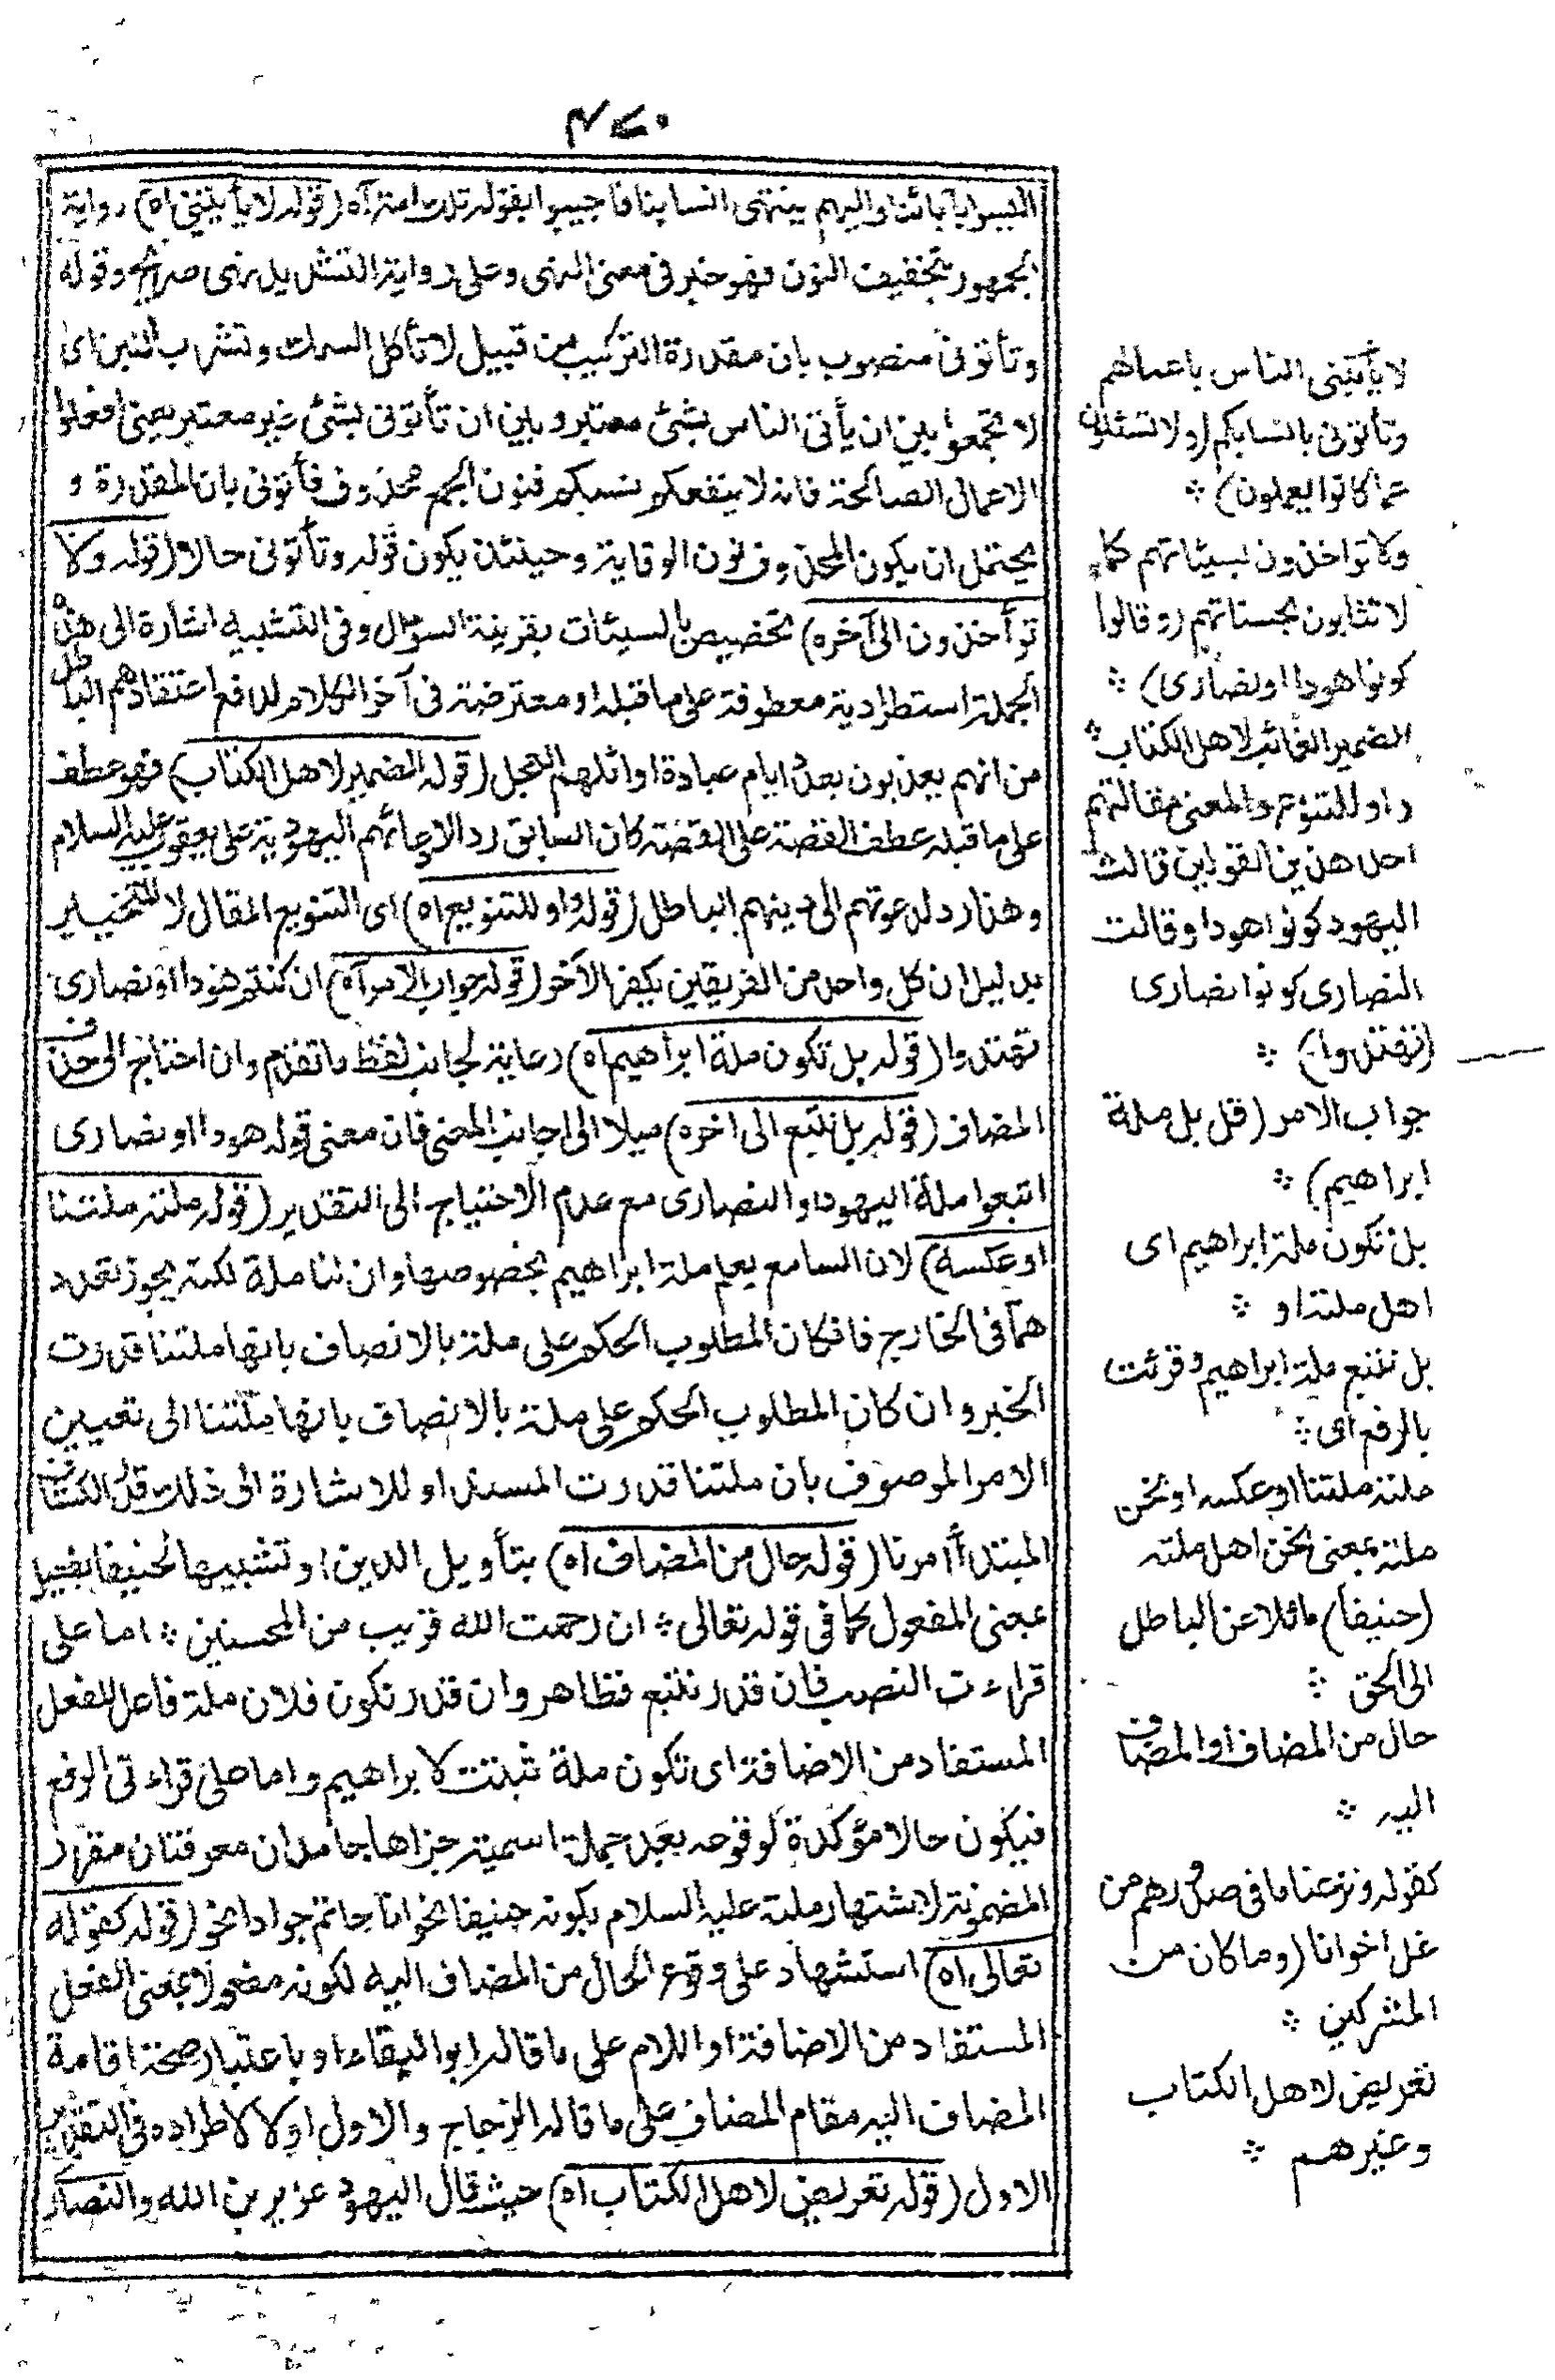 ٤٧٠
اليسوا بآبائنا واليهم ينتهى انسابنا فاجيبوا بقوله تلك امة آه (قوله لا يأتينى اه) رواية
الجمهور بتخفيف النون فهو خبر فى معنى النهى وعلى رواية التشديد نهى صريح وقوله
وتأتونى منصوب بان مقدرة التركيب من قبيل لا تأكل السمك وتشرب اللبن اى
لا تجمعوا بين ان يأتى الناس بشئ معتبر وبين ان تأتونى بشئ غير معتبر يعنى افعلوا
الاعمال الصالحة فانه لا ينفعكم نسبكم فنون الجمع محذوف فأتونى بان المقدرة و
يحتمل ان يكون المحذوف نون الوقاية وحينئذ يكون قوله وتأتونى حالا (قوله ولا
تؤأخذون الى آخره) تخصيص بالسيئات بقرينة السؤال وفى التشبيه اشارة الى هذه
الجملة استطرادية معطوفة على ما قبله او معترضة فى آخر الكلام لدفع اعتقادهم الباطل
من انهم يعذبون بعدد ايام عبادة اوائلهم العجل (قوله الضمير لاهل الكتاب) فهو عطف
على ما قبله عطف القصة على القصة كان السابق ردا لادعائهم اليهودية على يعقوب عليه السلام
وهذا رد لدعوتهم الى دينهم الباطل (قوله واو للتنويع اه) اى التنويع المقال لا للتخيير
بدليل ان كل واحد من الفريقين يكفر الآخر (قوله جواب الامر آه) ان كنتم هودا او نصارى
تهتدوا (قوله بل تكون ملة ابراهيم اه) رعاية لجانب لفظ ما تقدم وان احتاج الى حذف
المضاف (قوله بل نتبع الى اخره) ميلا الى جانب المعنى فان معنى قوله هودا او نصارى
اتبعوا ملة اليهود او النصارى مع عدم الاحتياج الى التقدير (قوله ملته ملتنا
او عكسه) لان السامع يعلم ملة ابراهيم بخصوصها وان لنا ملة لكنه يجوز تعدد
هما فى الخارج فان كان المطلوب الحكم على ملة بالاتصاف بانها ملتنا قدرت
الخبر وان كان المطلوب الحكم على ملة بالاتصاف بانها ملتنا الى تعيين
الامر الموصوف بان ملتنا قدرت المسند او للاشارة الى ذلك قدر الكشاف
المبتدأ امرنا (قوله حال من المضاف اه) بتأويل الدين او تشبيها لحنيفا بفعيل
بمعنى المفعول كما فى قوله تعالى ؞ ان رحمت الله قريب من المحسنين ؞ اما على
قراءت النصب فان قدر نتبع فظاهر وان قدر تكون فلان ملة فاعل للفعل
المستفاد من الاضافة اى تكون ملة ثبتت لابراهيم واما على قراءتى الرفع
فيكون حالا مؤكدة لوقوعه بعد جملة اسمية جزاها جامدان معرفتان مقرر
المضمونة لاشتهار ملته عليه السلام بكونه حنيفا نحو انا حاتم جوادا نحو (قوله كقوله
تعالى اه) استشهاد على وقوع الحال من المضاف اليه لكونه مفعولا بمعنى الفعل
المستفاد من الاضافة او اللام على ما قاله ابو البقاء او باعتبار صحة اقامة
المضاف اليه مقام المضاف على ما قاله الزجاج والاول اولا لاطراده فى التقدير
الاول (قوله تعريض لاهل الكتاب اه) حيث قال اليهود عزير بن الله والنصارى
لا يأتينى الناس باعمالهم
وتأتونى بانسابكم (ولا تسئلون
عما كانوا يعملون) ؞
ولا تؤاخذون بسيئاتهم كما
لا تثابون بحسناتهم (وقالوا
كونوا هودا او نصارى) ؞
الضمير الغائب لاهل الكتاب ؞
واو للتنويع والمعنى مقالتهم
احد هذين القولين قالت
اليهود كونوا هودا وقالت
النصارى كونوا نصارى
(تهتدوا) ؞
جواب الامر (قل بل ملة
ابراهيم) ؞
بل تكون ملة ابراهيم اى
اهل ملته او ؞
بل نتبع ملة ابراهيم وقرئت
بالرفع اى ؞
ملته ملتنا او عكسه او نحن
ملته بمعنى نحن اهل ملته
(حنيفا) مائلا عن الباطل
الى الحق ؞
حال من المضاف او المضاف
اليه ؞
كقوله ونزعنا ما فى صدورهم من
غل اخوانا (وما كان من
المشركين ؞
تعريض لاهل الكتاب
وغيرهم ؞